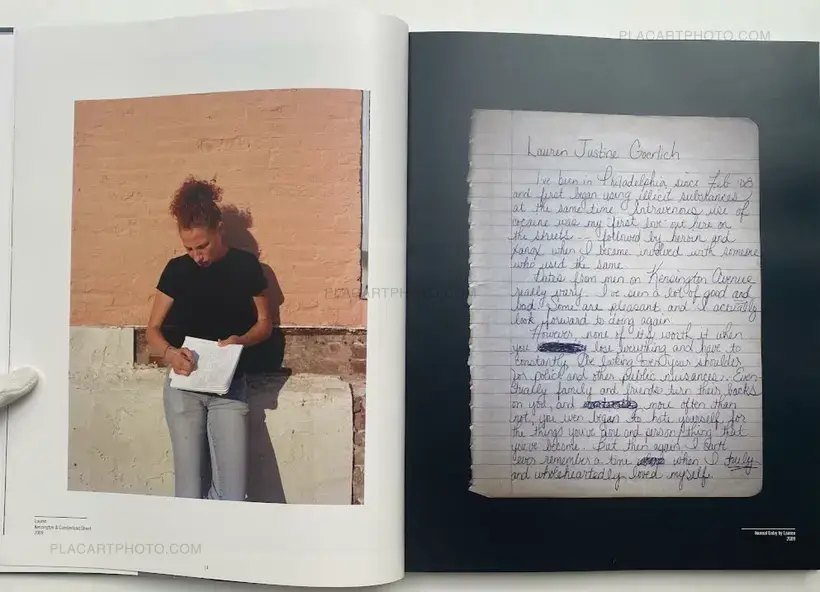 PLACARTPHOTO.COM
PLACARTPHOTO.COM
PLACARTPHOTO.COM
Lauren
Kensington & Cumberland Street
2009
Lauren Justine Goerlich
I've been in Philadelphia since Feb '08
and first began using illicit substances
at the same time. Intravenous use of
cocaine was my "first love" out here on
the streets -- followed by heroin and
Xanax when I became involved with someone
who used the same.
Dates from men on Kensington Avenue
really vary. I've seen a lot of good and
bad. Some are pleasant and I actually
look forward to doing again.
However, none of it's worth it when
you lose everything and have to
constantly be looking over your shoulder
for police and other public nuisances. Even-
tually family and friends turn their backs
on you, and more often than
not, you even began to hate yourself for
the things you've done and person/thing that
you've become. But then again I can't
ever remember a time when I truly
and wholeheartedly loved myself.
Journal Entry by Lauren
2009